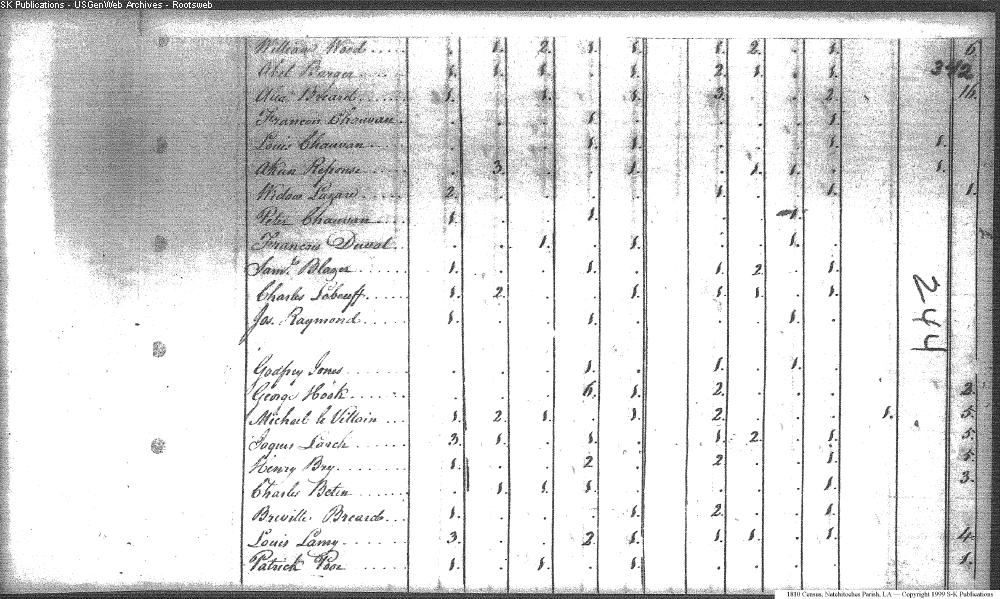 SK Publications - USGenWeb Archives - Rootsweb
William Wood . 1. 2. 1. 1. 1. 2. . 1. 6
Abel Barger 1. 1. 1. . 1. 2. 1. . 1. 342
Alex Breard 1. . 1. . 1. 3. . . 2. 16.
Francois Chauvan . . . 1. . . . . 1.
Louis Chauvan . . . 1. 1. . . . 1. 1.
Reponse . 3. . . 1. . 1. 1. . 1.
Widow Lazare 2. . . . . 1. . . 1. 1.
Peter Chauvan 1. . . 1. . . . 1.
Francois Duval . . 1. . 1. . . 1. .
Saml. Blazer 1. . . 1. . 1. 2. . 1.
Charles Lebeuff 1. 2. . . 1. 1. 1. . 1.
Jos. Raymond 1. . . 1. . . . 1. .
Godfrey Jones . . . 1. . 1. . 1. .
George Hook . . . 6. 1. 2. . . . 2.
Michael le Villain 1. 2. 1. . 1. 2. . . . 1. 5.
Jaques Larch 3. 1. . 1. . 1. 2. . 1. 5.
Henry Bry 1. . . 2 . 2. . . 1. 5.
Charles Betin . 1. 1. 1. . . . . 1. 3.
Breville Breard 1. . . . 1. 2. . . 1.
Louis Lamy 3. . . 2. 1. 1. 1. . 1. 4.
Patrick Poor 1. . 1. . 1. . . . . 1.
244
1810 Census, Natchitoches Parish, LA — Copyright 1999 S-K Publications